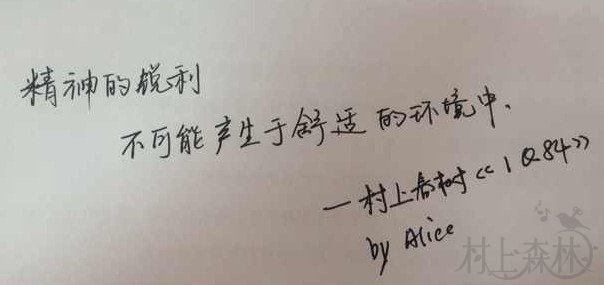 精神的锐利
不可能产生于舒适的环境中.
—村上春树《1Q84》
by Alice
村上森林